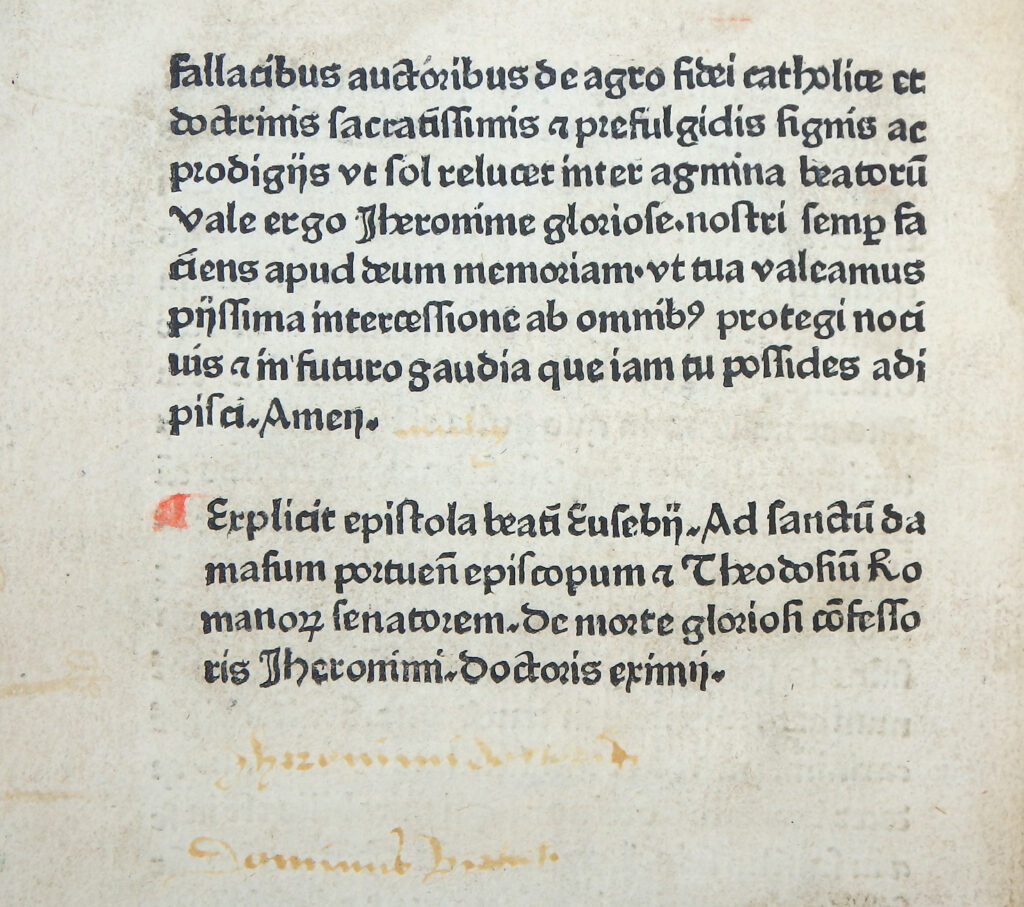 fallacibus auctoribus de agro fidei catholice et
doctrinis sacratissimis ⁊ prefulgidis signis ac
prodigijs vt sol relucet inter agmina beatorū
Vale ergo Jheronime gloriose.nostri semꝑ fa
ciens apud deum memoriam.vt tua valeamus
pijssima intercessione ab omnibꝰ protegi noci
uis ⁊ in futuro gaudia que iam tu possides adi
pisci.Amen.
Explicit epistola beati Eusebij.Ad sanctū da
masum portueñ episcopum ⁊ Theodosiū Ro
manoꝝ senatorem.De morte gloriosi cōfesso
ris Jheronimi.doctoris eximij.
Jheronimi
Dominus